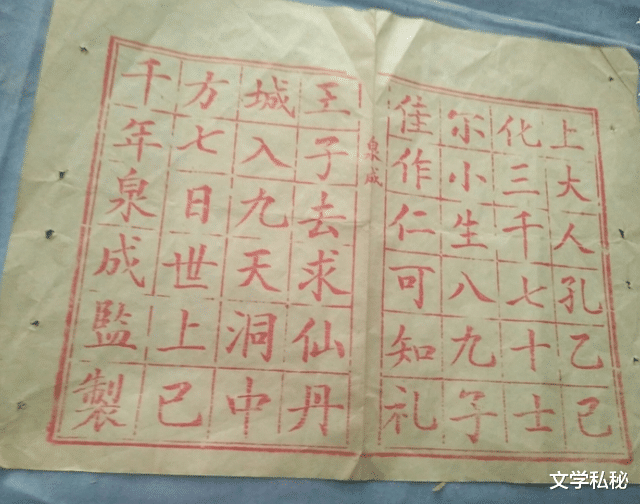 上大人孔乙己
化三千七十士
尔小生八九子
佳作仁可知礼
泉成
王子去求仙丹
城入九天洞中
方七日世上已
千年泉成監製
文学私秘